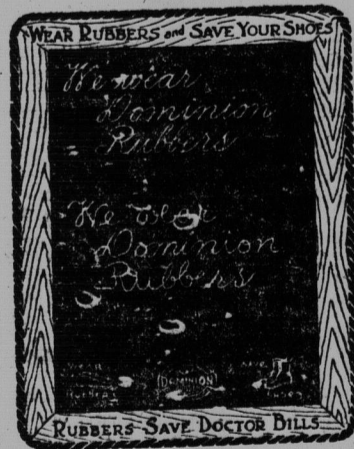 WEAR RUBBERS and SAVE YOUR SHOES
We wear
Dominion
Rubbers
We wear
Dominion
Rubbers
DOMINION
RUBBERS SAVE DOCTOR BILLS